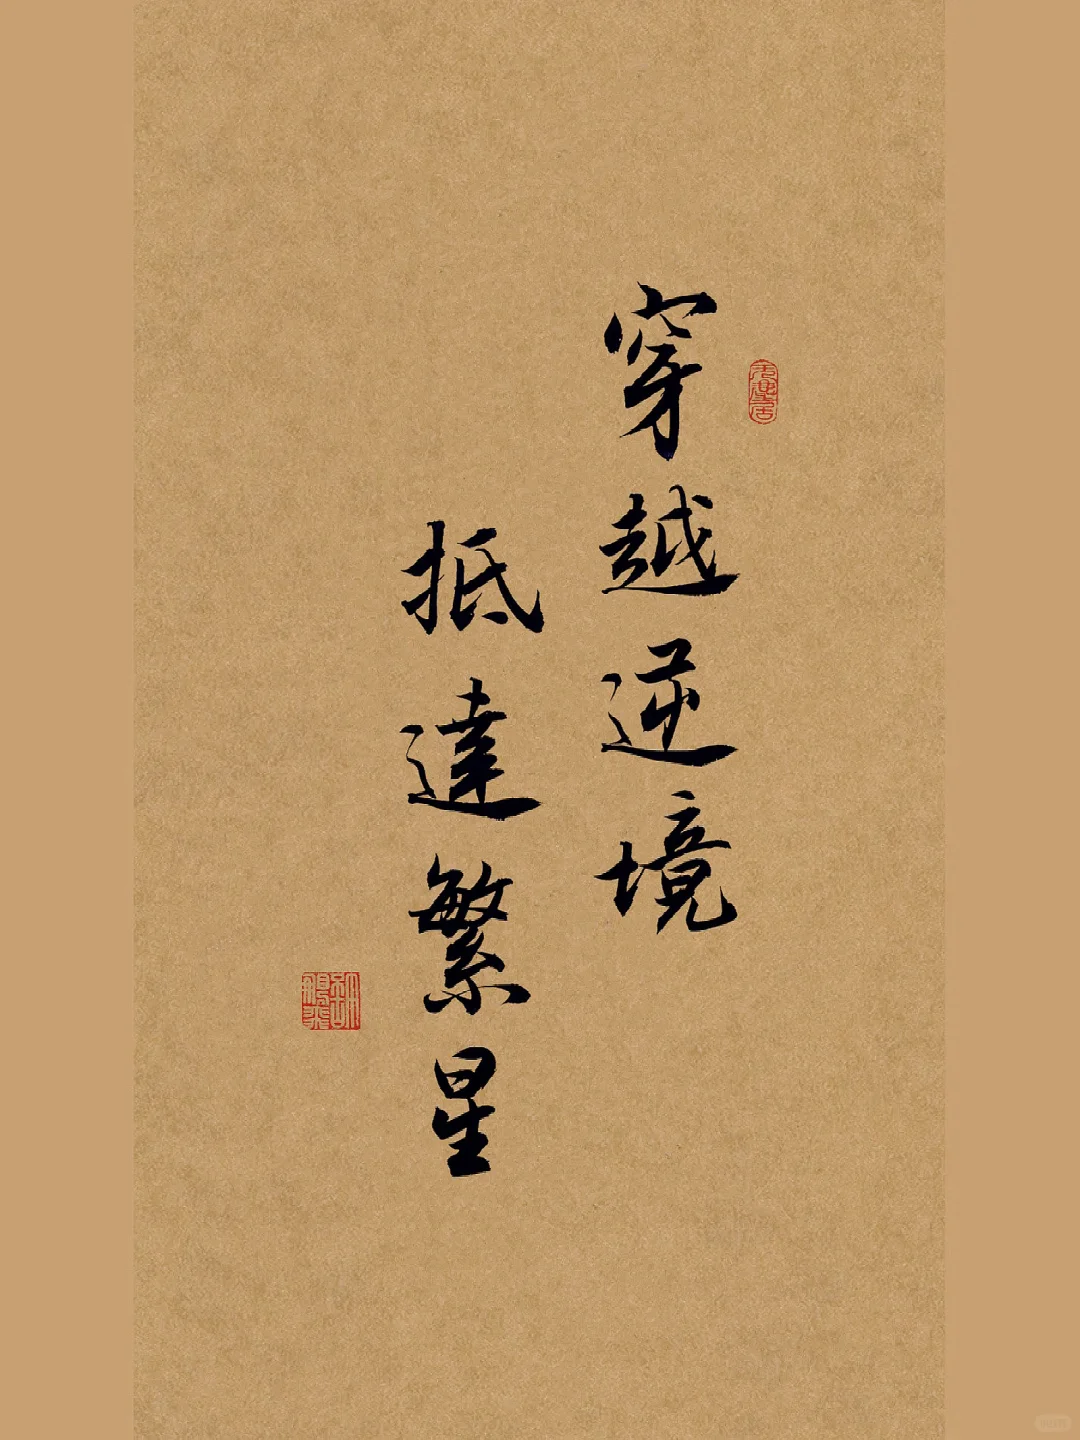 穿越逆境
抵達繁星